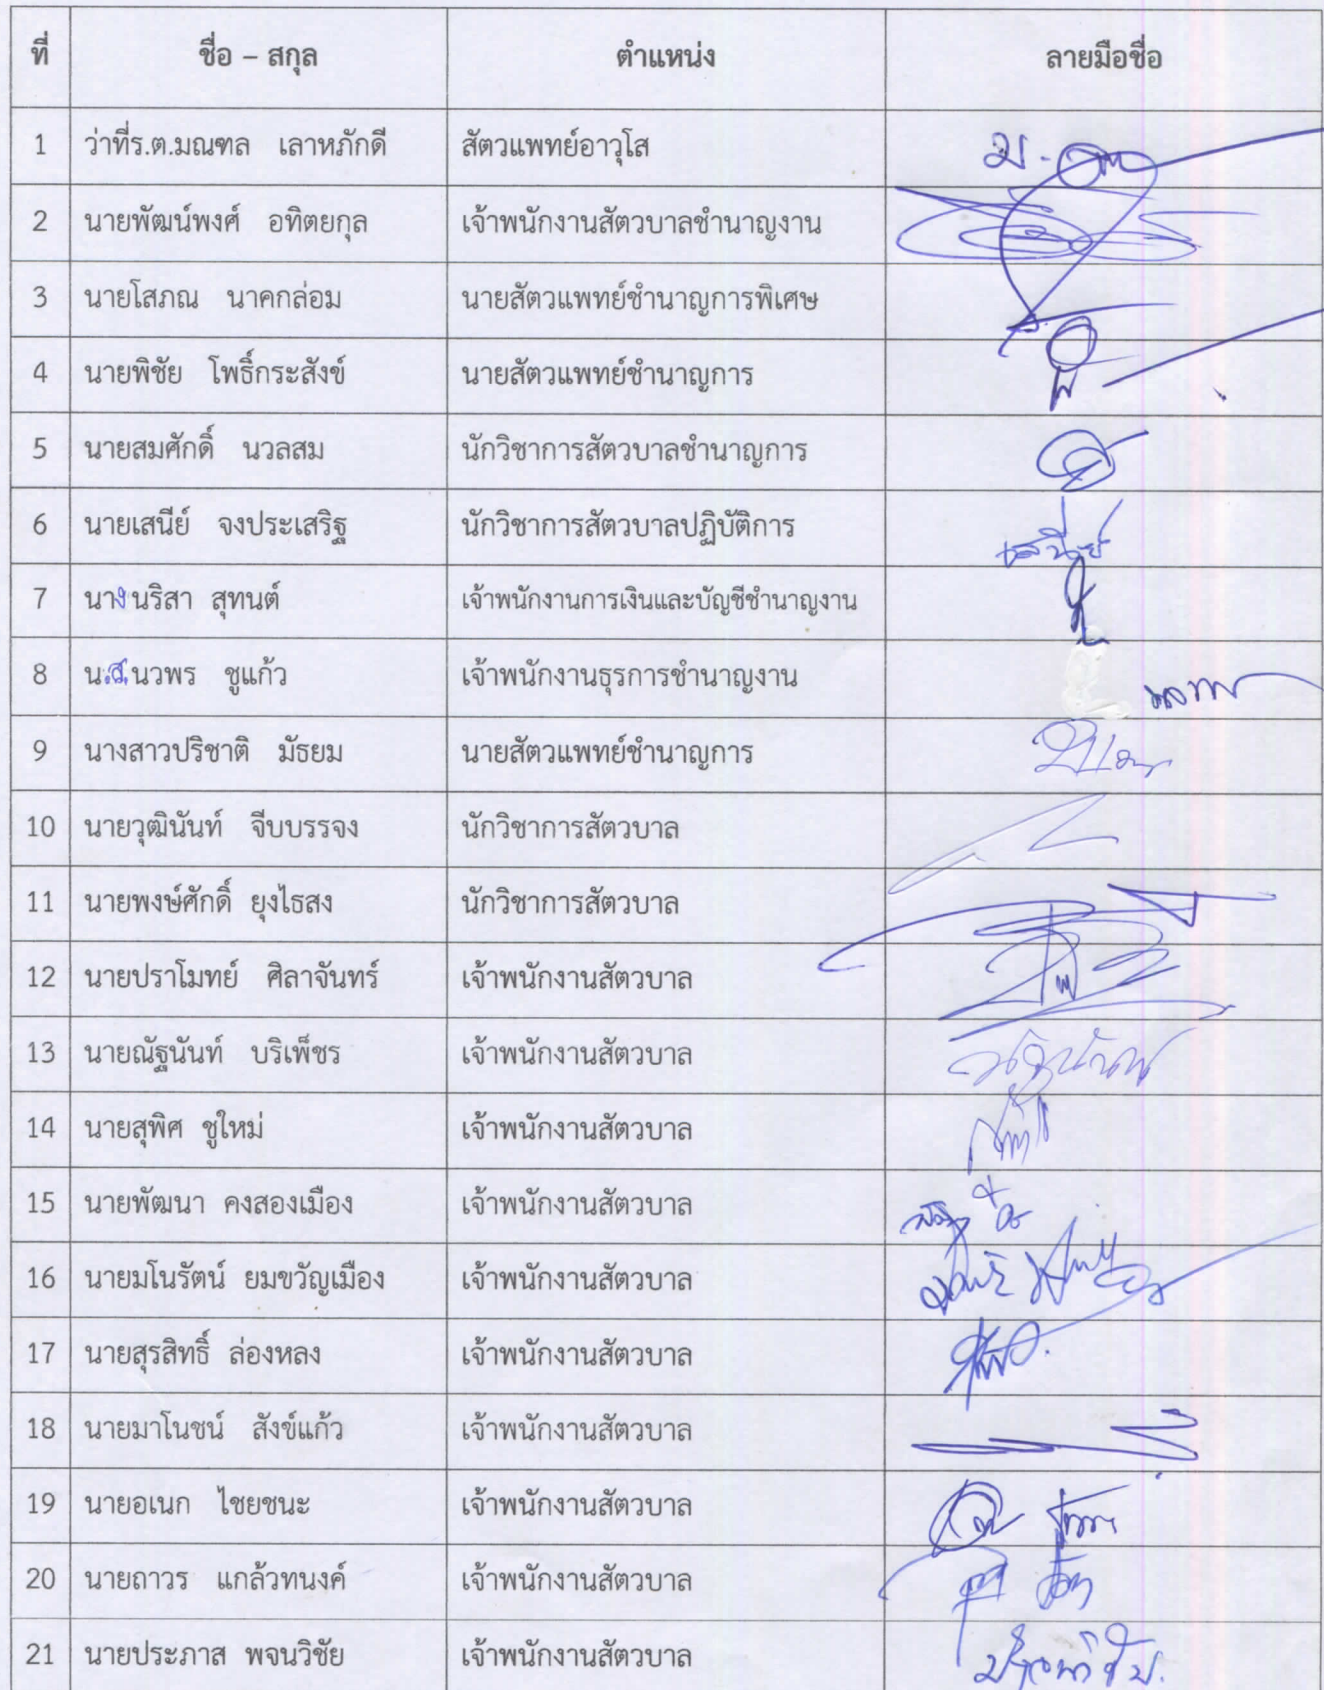 ที่ ชื่อ – สกุล ตำแหน่ง ลายมือชื่อ
1 ว่าที่ร.ต.มณฑล เลาหภักดี สัตวแพทย์อาวุโส
2 นายพัฒน์พงศ์ อทิตยกุล เจ้าพนักงานสัตวบาลชำนาญงาน
3 นายโสภณ นาคกล่อม นายสัตวแพทย์ชำนาญการพิเศษ
4 นายพิชัย โพธิ์กระสังข์ นายสัตวแพทย์ชำนาญการ
5 นายสมศักดิ์ นวลสม นักวิชาการสัตวบาลชำนาญการ
6 นายเสนีย์ จงประเสริฐ นักวิชาการสัตวบาลปฏิบัติการ เสนีย์
7 นางนริสา สุทนต์ เจ้าพนักงานการเงินและบัญชีชำนาญงาน
8 น.ส.นวพร ชูแก้ว เจ้าพนักงานธุรการชำนาญงาน
9 นางสาวปริชาติ มัธยม นายสัตวแพทย์ชำนาญการ
10 นายวุฒินันท์ จีบบรรจง นักวิชาการสัตวบาล
11 นายพงษ์ศักดิ์ ยุงไธสง นักวิชาการสัตวบาล
12 นายปราโมทย์ ศิลาจันทร์ เจ้าพนักงานสัตวบาล
13 นายณัฐนันท์ บริเพ็ชร เจ้าพนักงานสัตวบาล
14 นายสุพิศ ชูใหม่ เจ้าพนักงานสัตวบาล
15 นายพัฒนา คงสองเมือง เจ้าพนักงานสัตวบาล
16 นายมโนรัตน์ ยมขวัญเมือง เจ้าพนักงานสัตวบาล
17 นายสุรสิทธิ์ ล่องหลง เจ้าพนักงานสัตวบาล
18 นายมาโนชน์ สังข์แก้ว เจ้าพนักงานสัตวบาล
19 นายอเนก ไชยชนะ เจ้าพนักงานสัตวบาล
20 นายถาวร แกล้วทนงค์ เจ้าพนักงานสัตวบาล
21 นายประภาส พจนวิชัย เจ้าพนักงานสัตวบาล